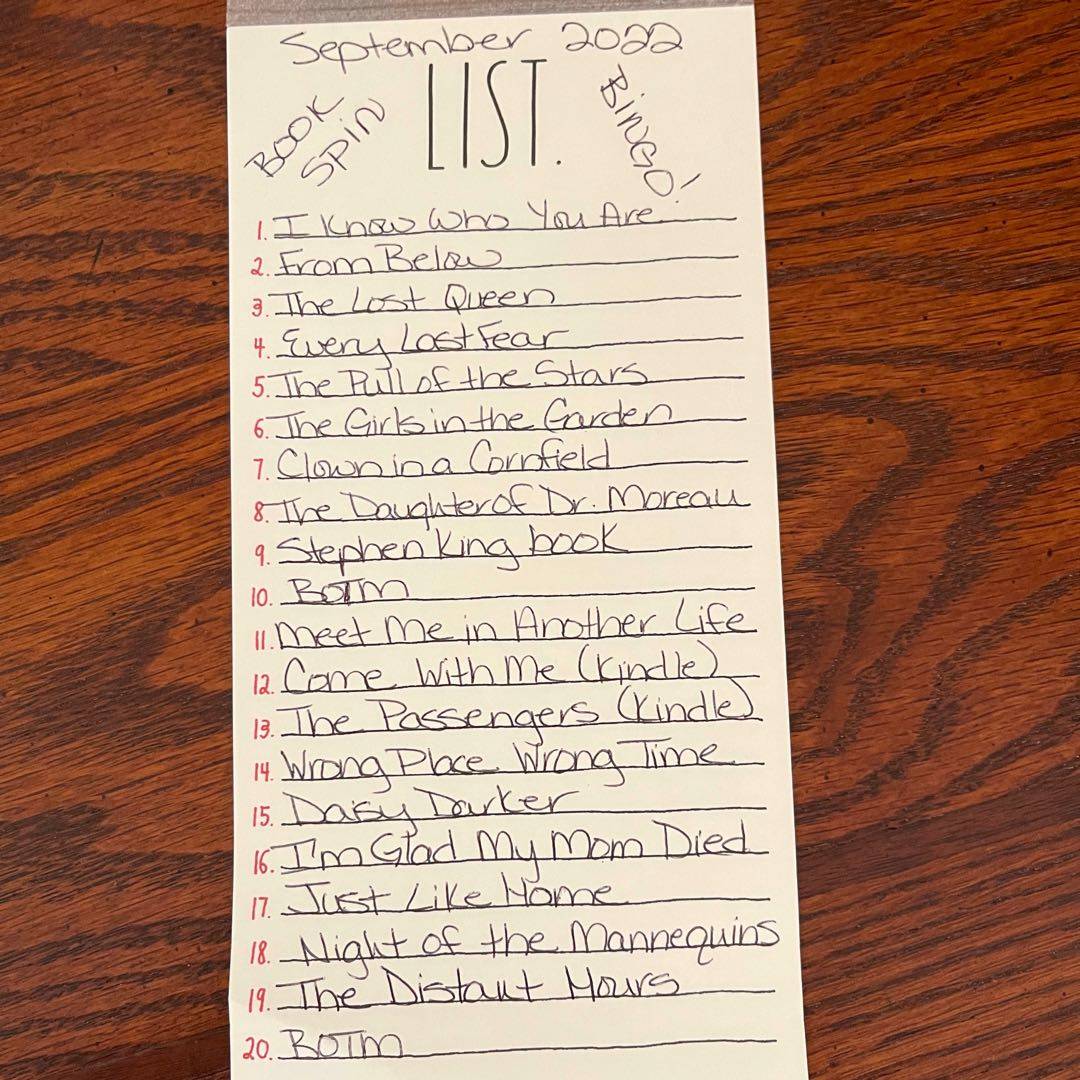 September 2022
BOOK SPIN
LIST.
BINGO!
1. I Know Who You Are
2. From Below
3. The Lost Queen
4. Every Last Fear
5. The Pull of the Stars
6. The Girls in the Garden
7. Clown in a Cornfield
8. The Daughter of Dr. Moreau
9. Stephen King book
10. BOTM
11. Meet Me in Another Life
12. Come With Me (Kindle)
13. The Passengers (Kindle)
14. Wrong Place Wrong Time
15. Daisy Darker
16. I'm Glad My Mom Died
17. Just Like Home
18. Night of the Mannequins
19. The Distant Hours
20. BOTM